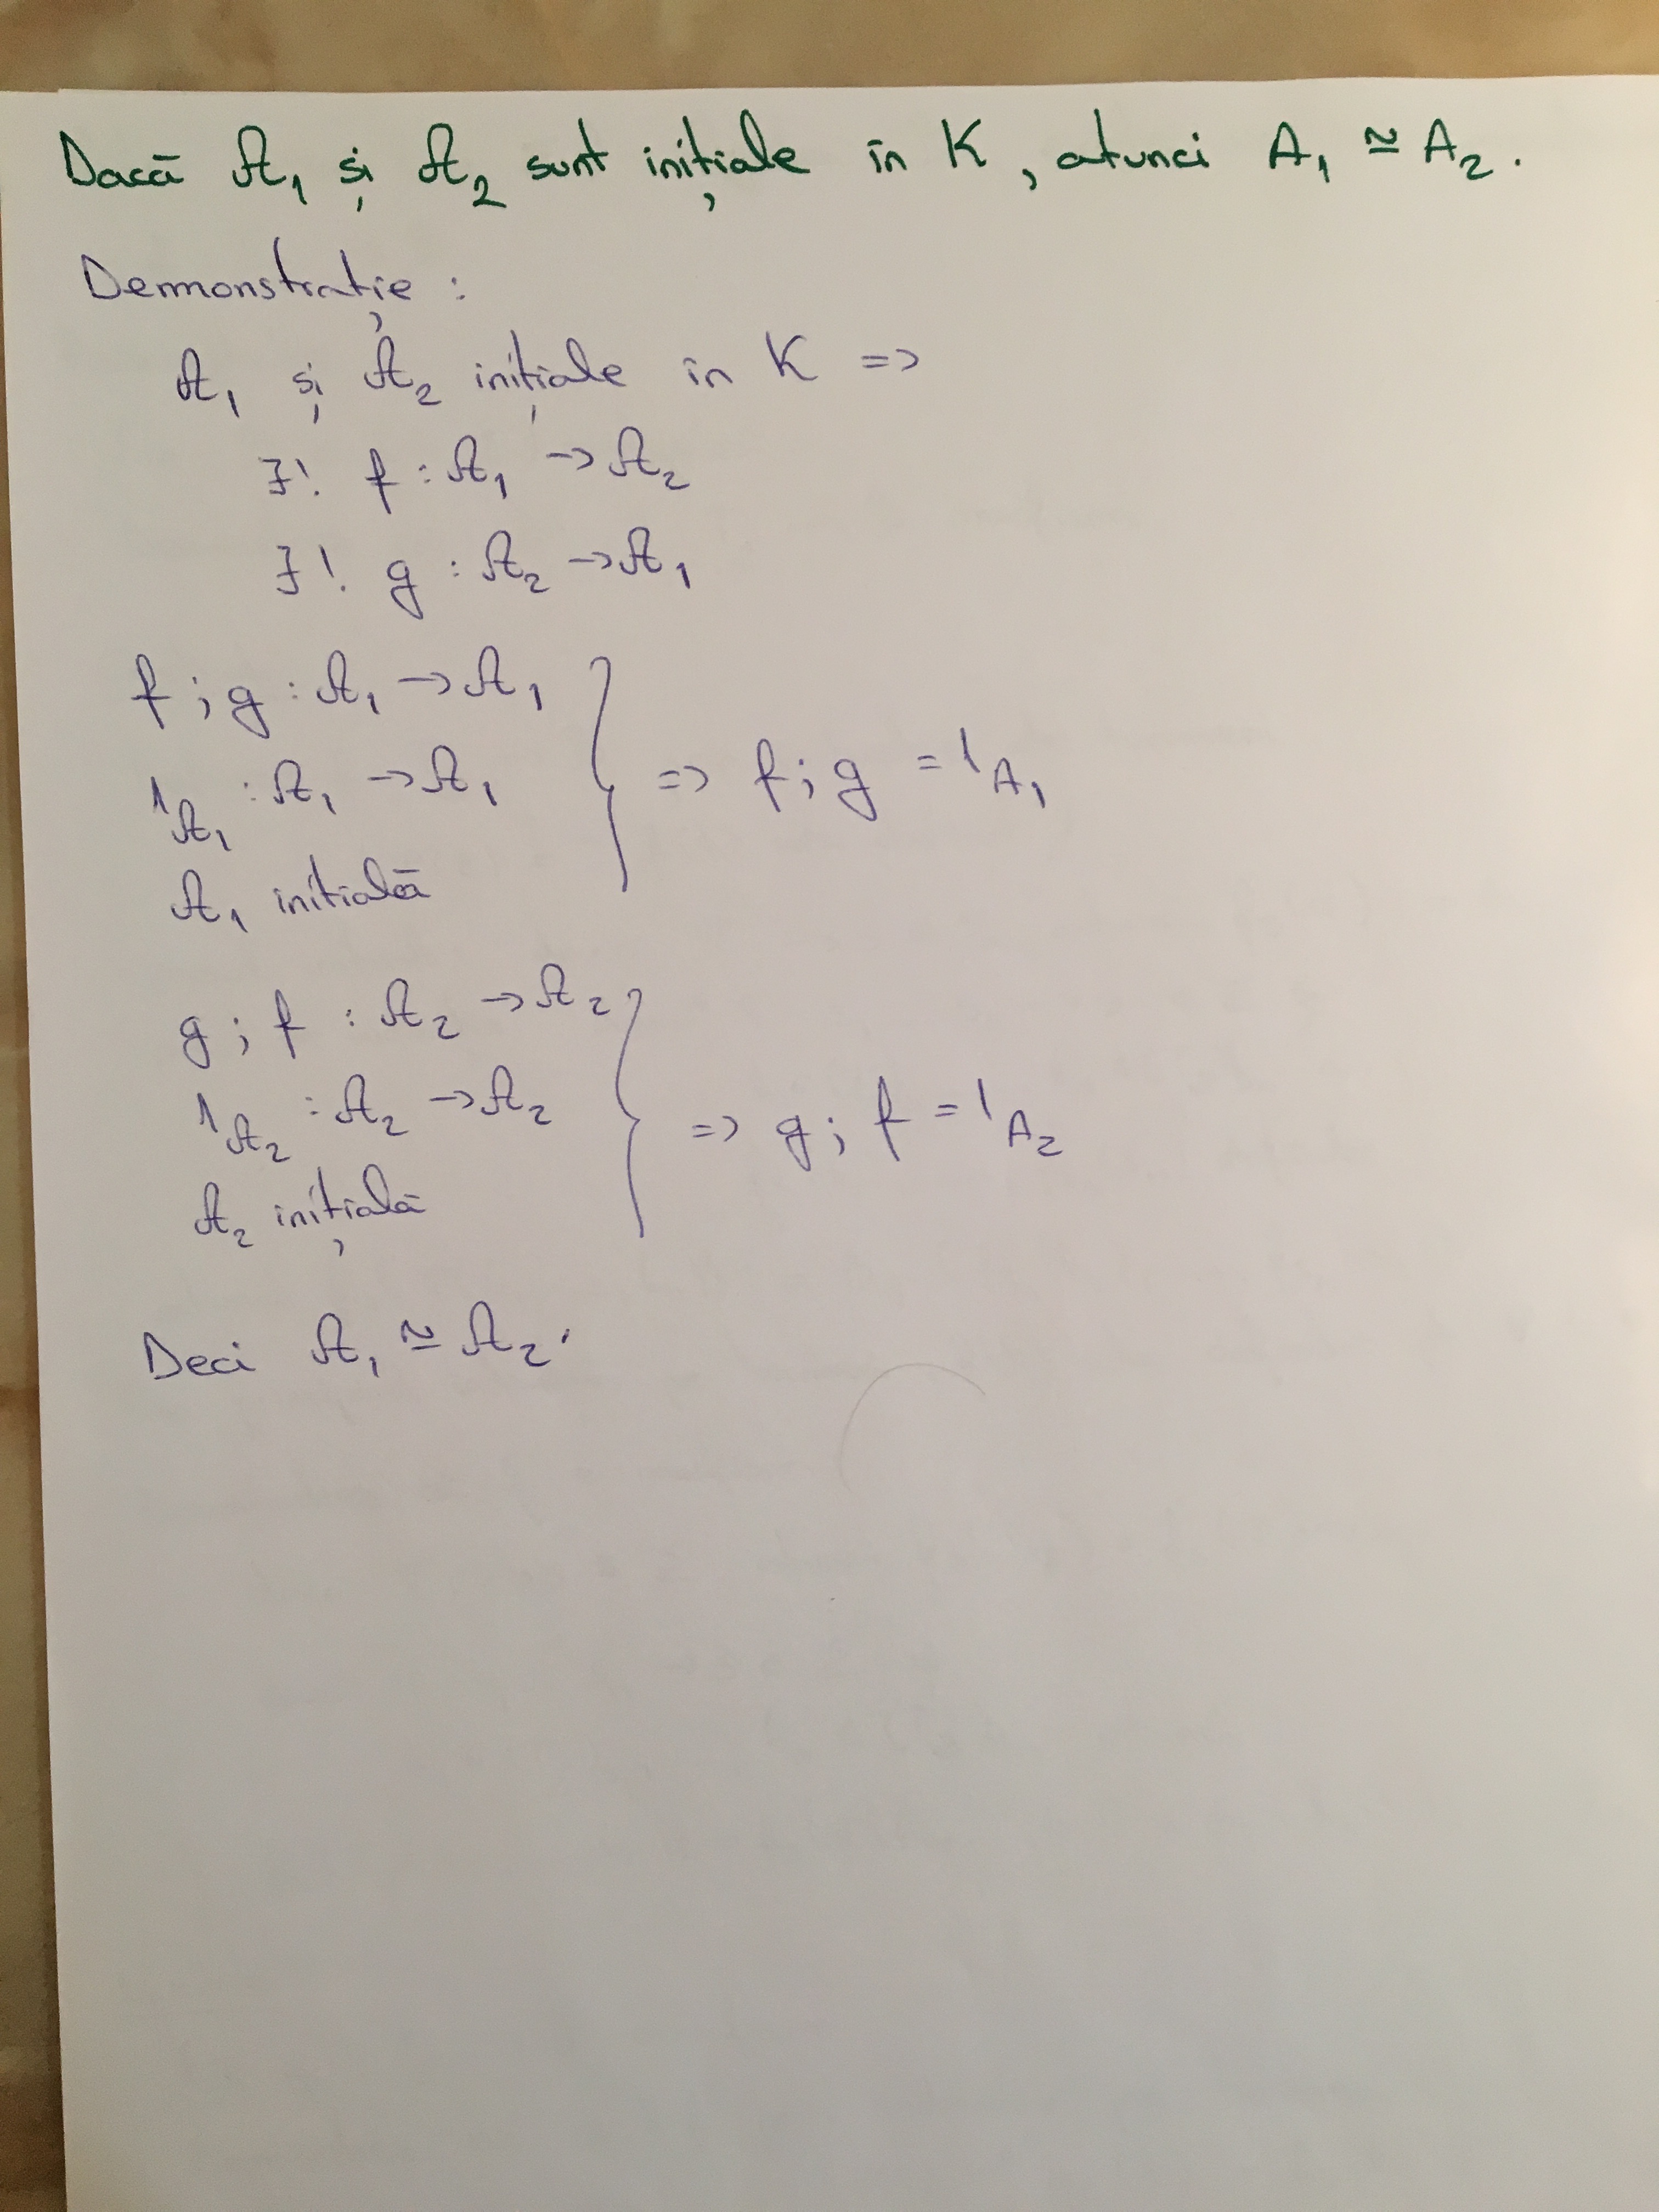 Dacă 𝒜₁ și 𝒜₂ sunt inițiale în K, atunci A₁ ≅ A₂.
Demonstrație :
𝒜₁ și 𝒜₂ inițiale în K =>
∃! f : 𝒜₁ → 𝒜₂
∃! g : 𝒜₂ → 𝒜₁
f ; g : 𝒜₁ → 𝒜₁
1_𝒜₁ : 𝒜₁ → 𝒜₁ } => f ; g = 1_A₁
𝒜₁ initială
g ; f : 𝒜₂ → 𝒜₂
1_𝒜₂ : 𝒜₂ → 𝒜₂ } => g ; f = 1_A₂
𝒜₂ inițială
Deci 𝒜₁ ≅ 𝒜₂.